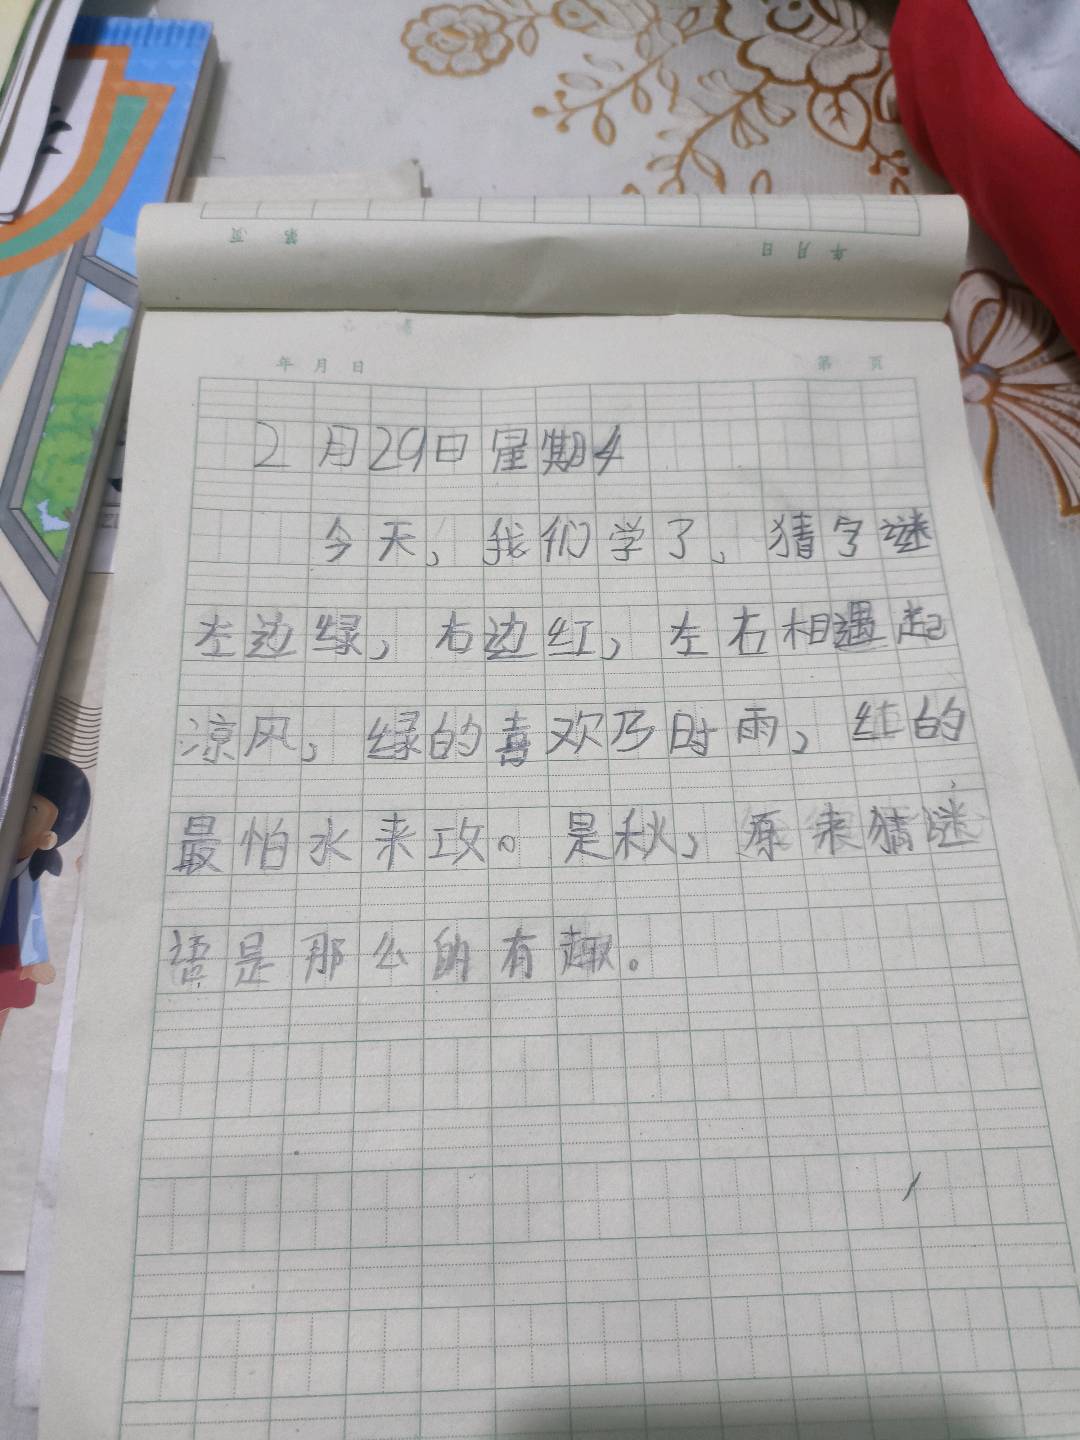 第 页
年 月 日
年 月 日
第 页
2月29日星期4
今天，我们学了，猜字谜
左边绿，右边红，左右相遇起
凉风，绿的喜欢及时雨，红的
最怕水来攻。是秋，原来猜谜
语是那么的有趣。